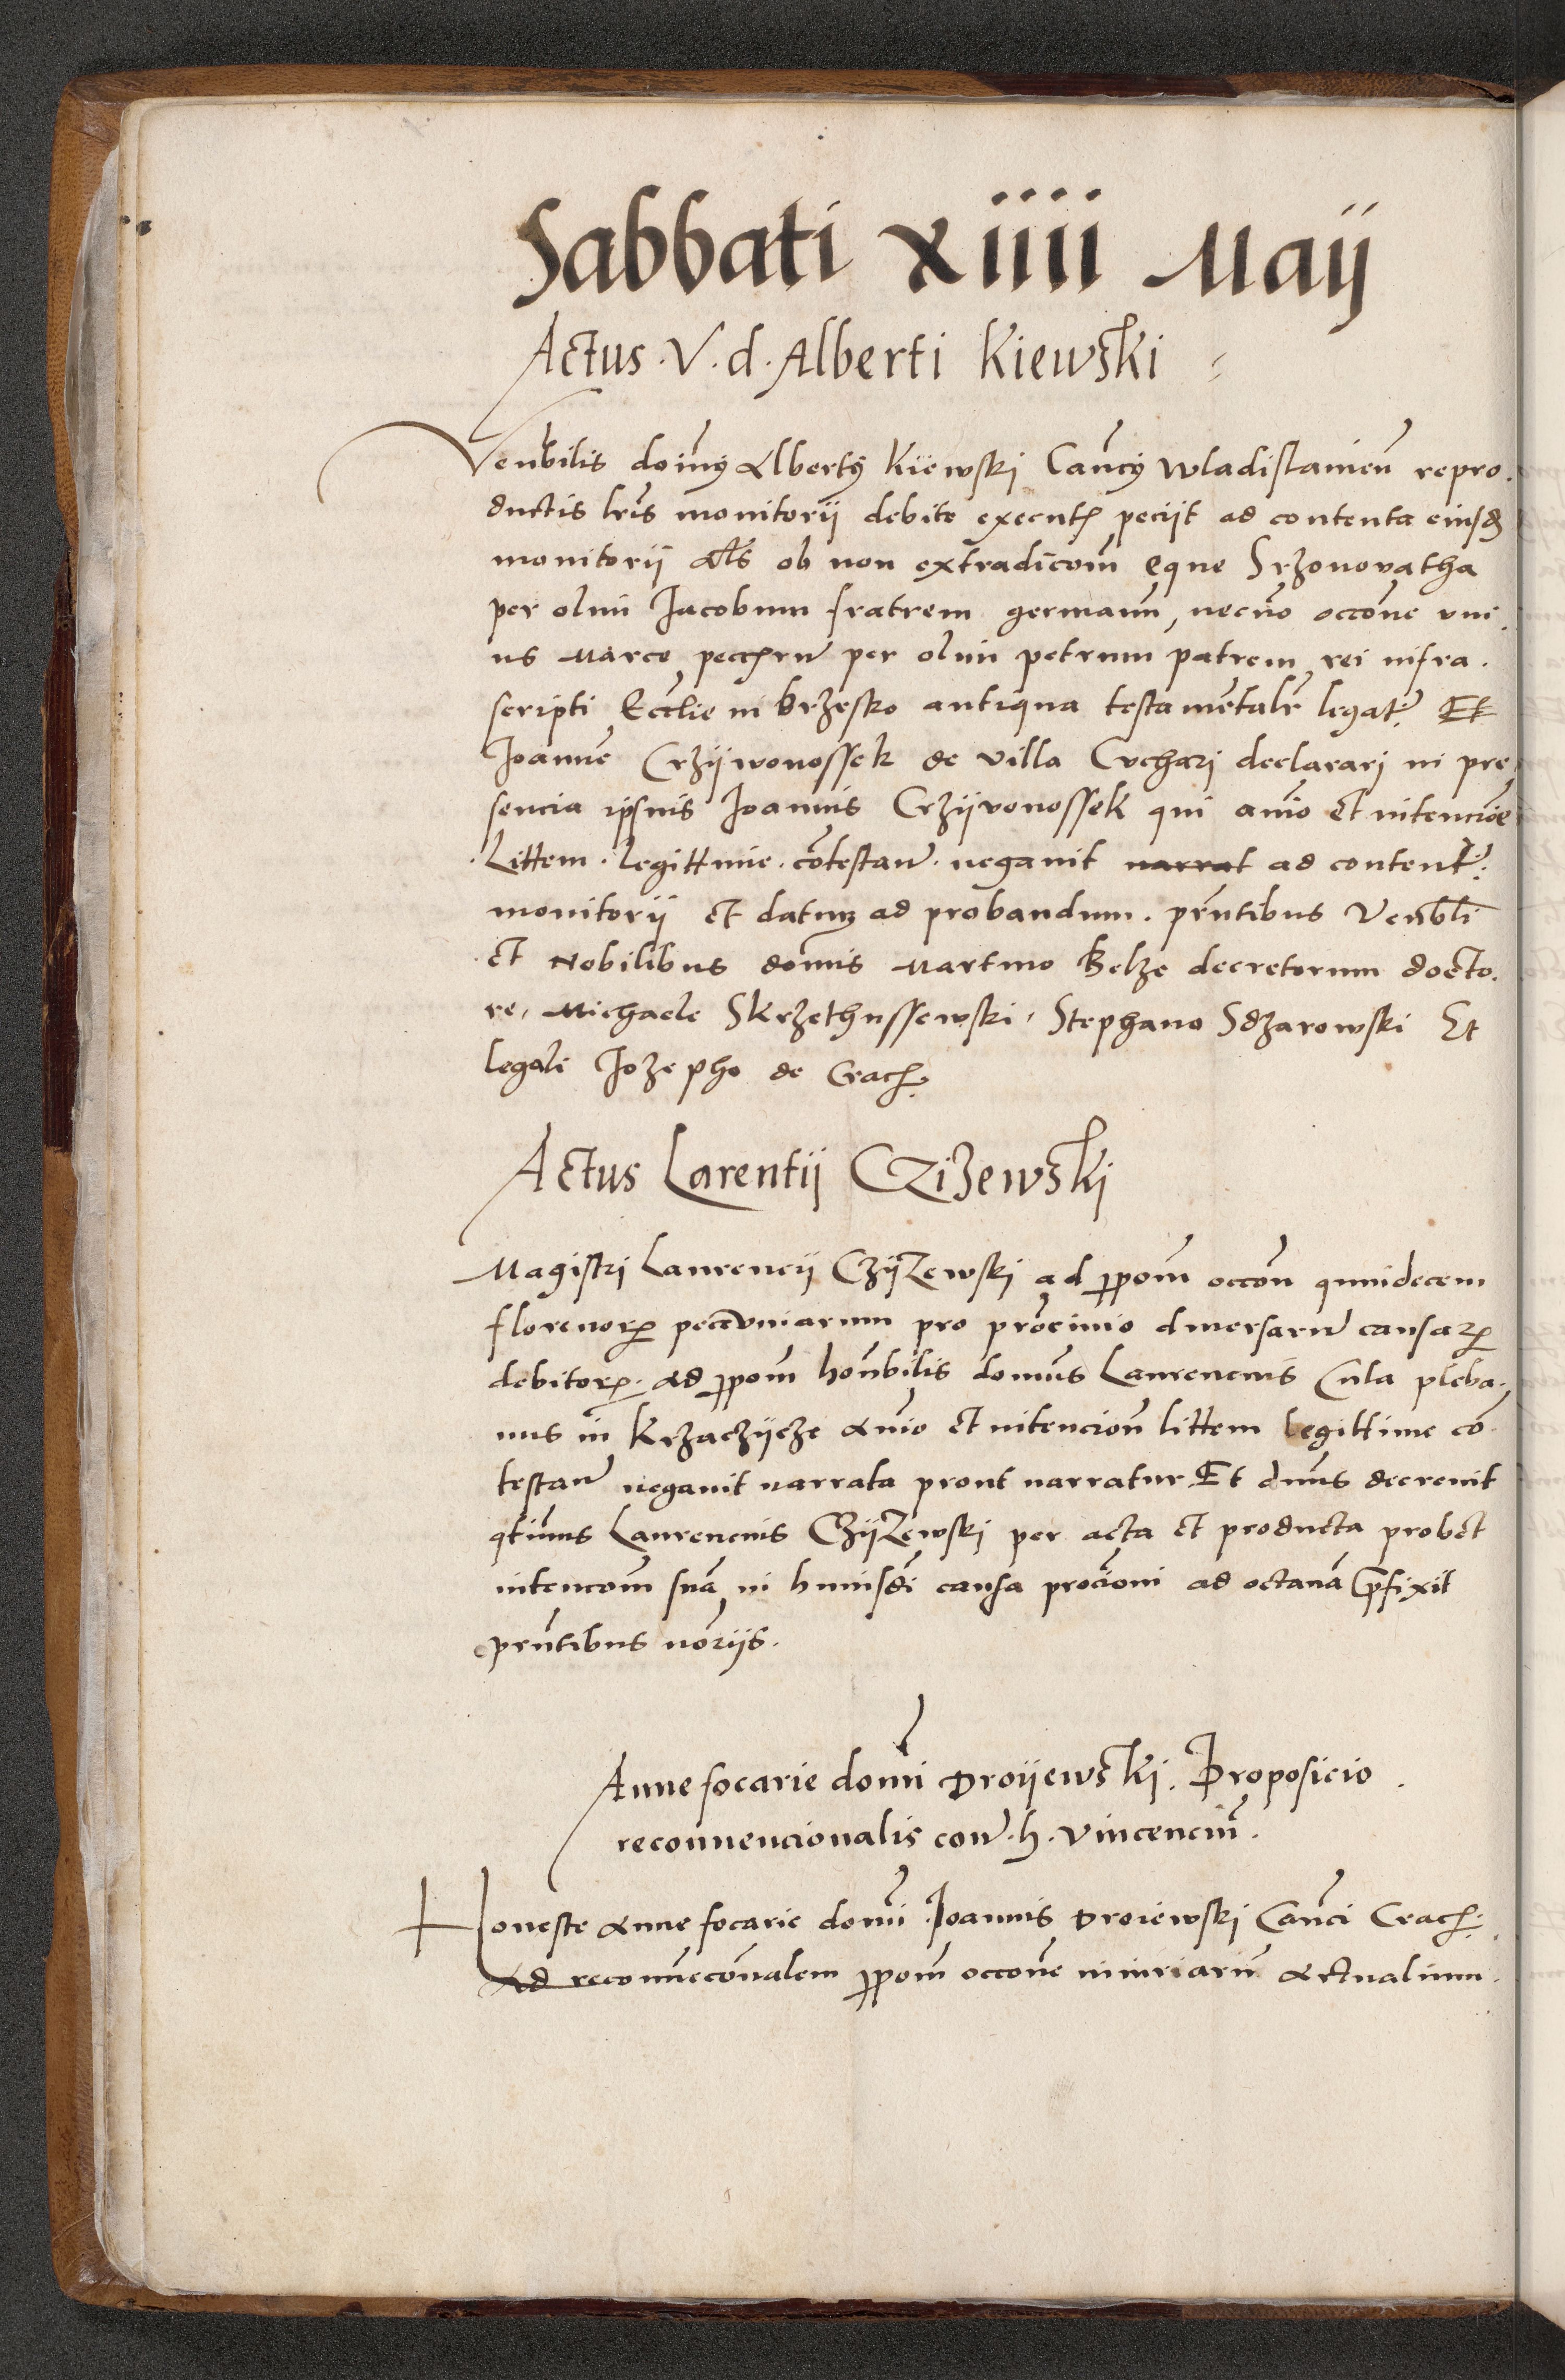 Sabbati xiiii Maij
Actus. V. d. Alberti Kiewski
Venbilis domnꝰ Albertꝰ Kijewski Cancꝰ Wladislauien repro.
ductis lris monitorij debite executis peciit ad contenta eiusd
monitorij als ob non extradicom eque Srzonovatha
per olim Jacobum fratrem germanu, necno occone vni
us Marce peccharu per olim petrum patrem rei infra.
scripti Ecclie in brzesko antiqua testamentalr legat. Et
Joanne Crzijwonossek de villa Cuchari declarari in pre
sencia ipsius Joannis Crzijvonossek qui animo et intencioe
Littem. legittime. cotestan. negauit narrat ad content.
monitorij et datum ad probandum. prntibus Venbli
et Nobilibus domis Martino Belze decretorum docto.
re, Michaele Skrzethussewski, Stephano Sdzarowski Et
legali Jozepho de Crach.
Actus Larentij Czizewski
Magistri Laurencij Czijzewski ad ppom occon quindecem
florenorꝝ pecuniarum pro procinio diuersaru causarꝝ
debitorꝝ. ad ppom honbilis domnus Laurencius Cula pleba.
nus in Krzaczijcze animo et intencion littem legittime co
testan negauit narrata prout narratur. Et dnus decreuit
qtinus Laurencius Czijzewski per acta et producta probet
intencom sua in huiusdi causa procioni ad octaua pfixit
prntibus noriis.
Anne focarie domi Droijewski. Proposicio
reconuencionalis con. h. Vincenciu.
Honeste Anne focarie domi Joannis Droiewski Canci Crach.
Ad reconuecoualem ppom occone iniuriaru actualium.